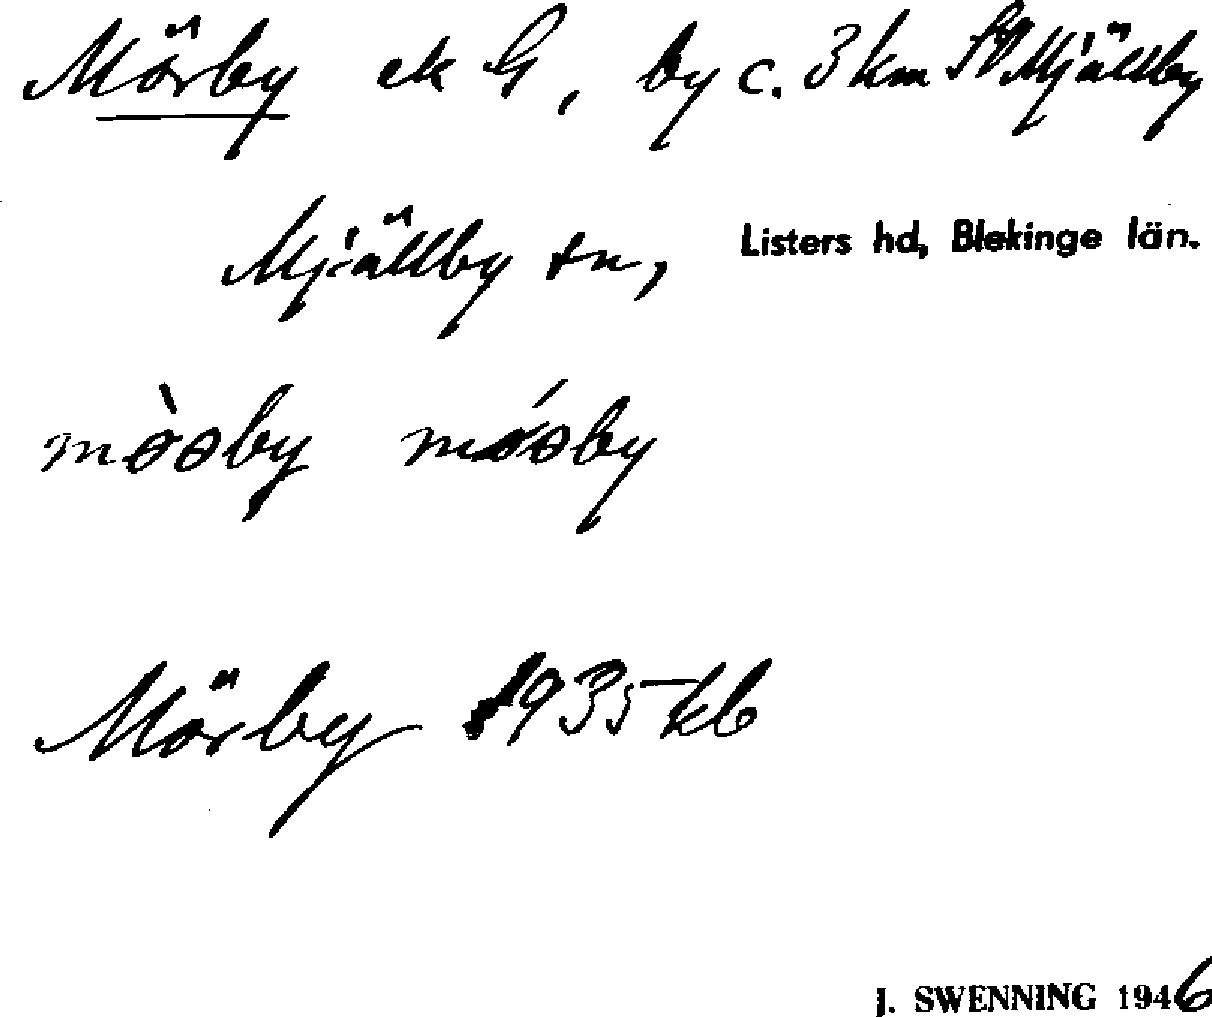 Mörby ek G, by c. 3 km SV Mjällby
Mjällby sn, Listers hd, Blekinge län.
mø̀ əby mǿəby
Mörby 1935 kb
J. SWENNING 1946